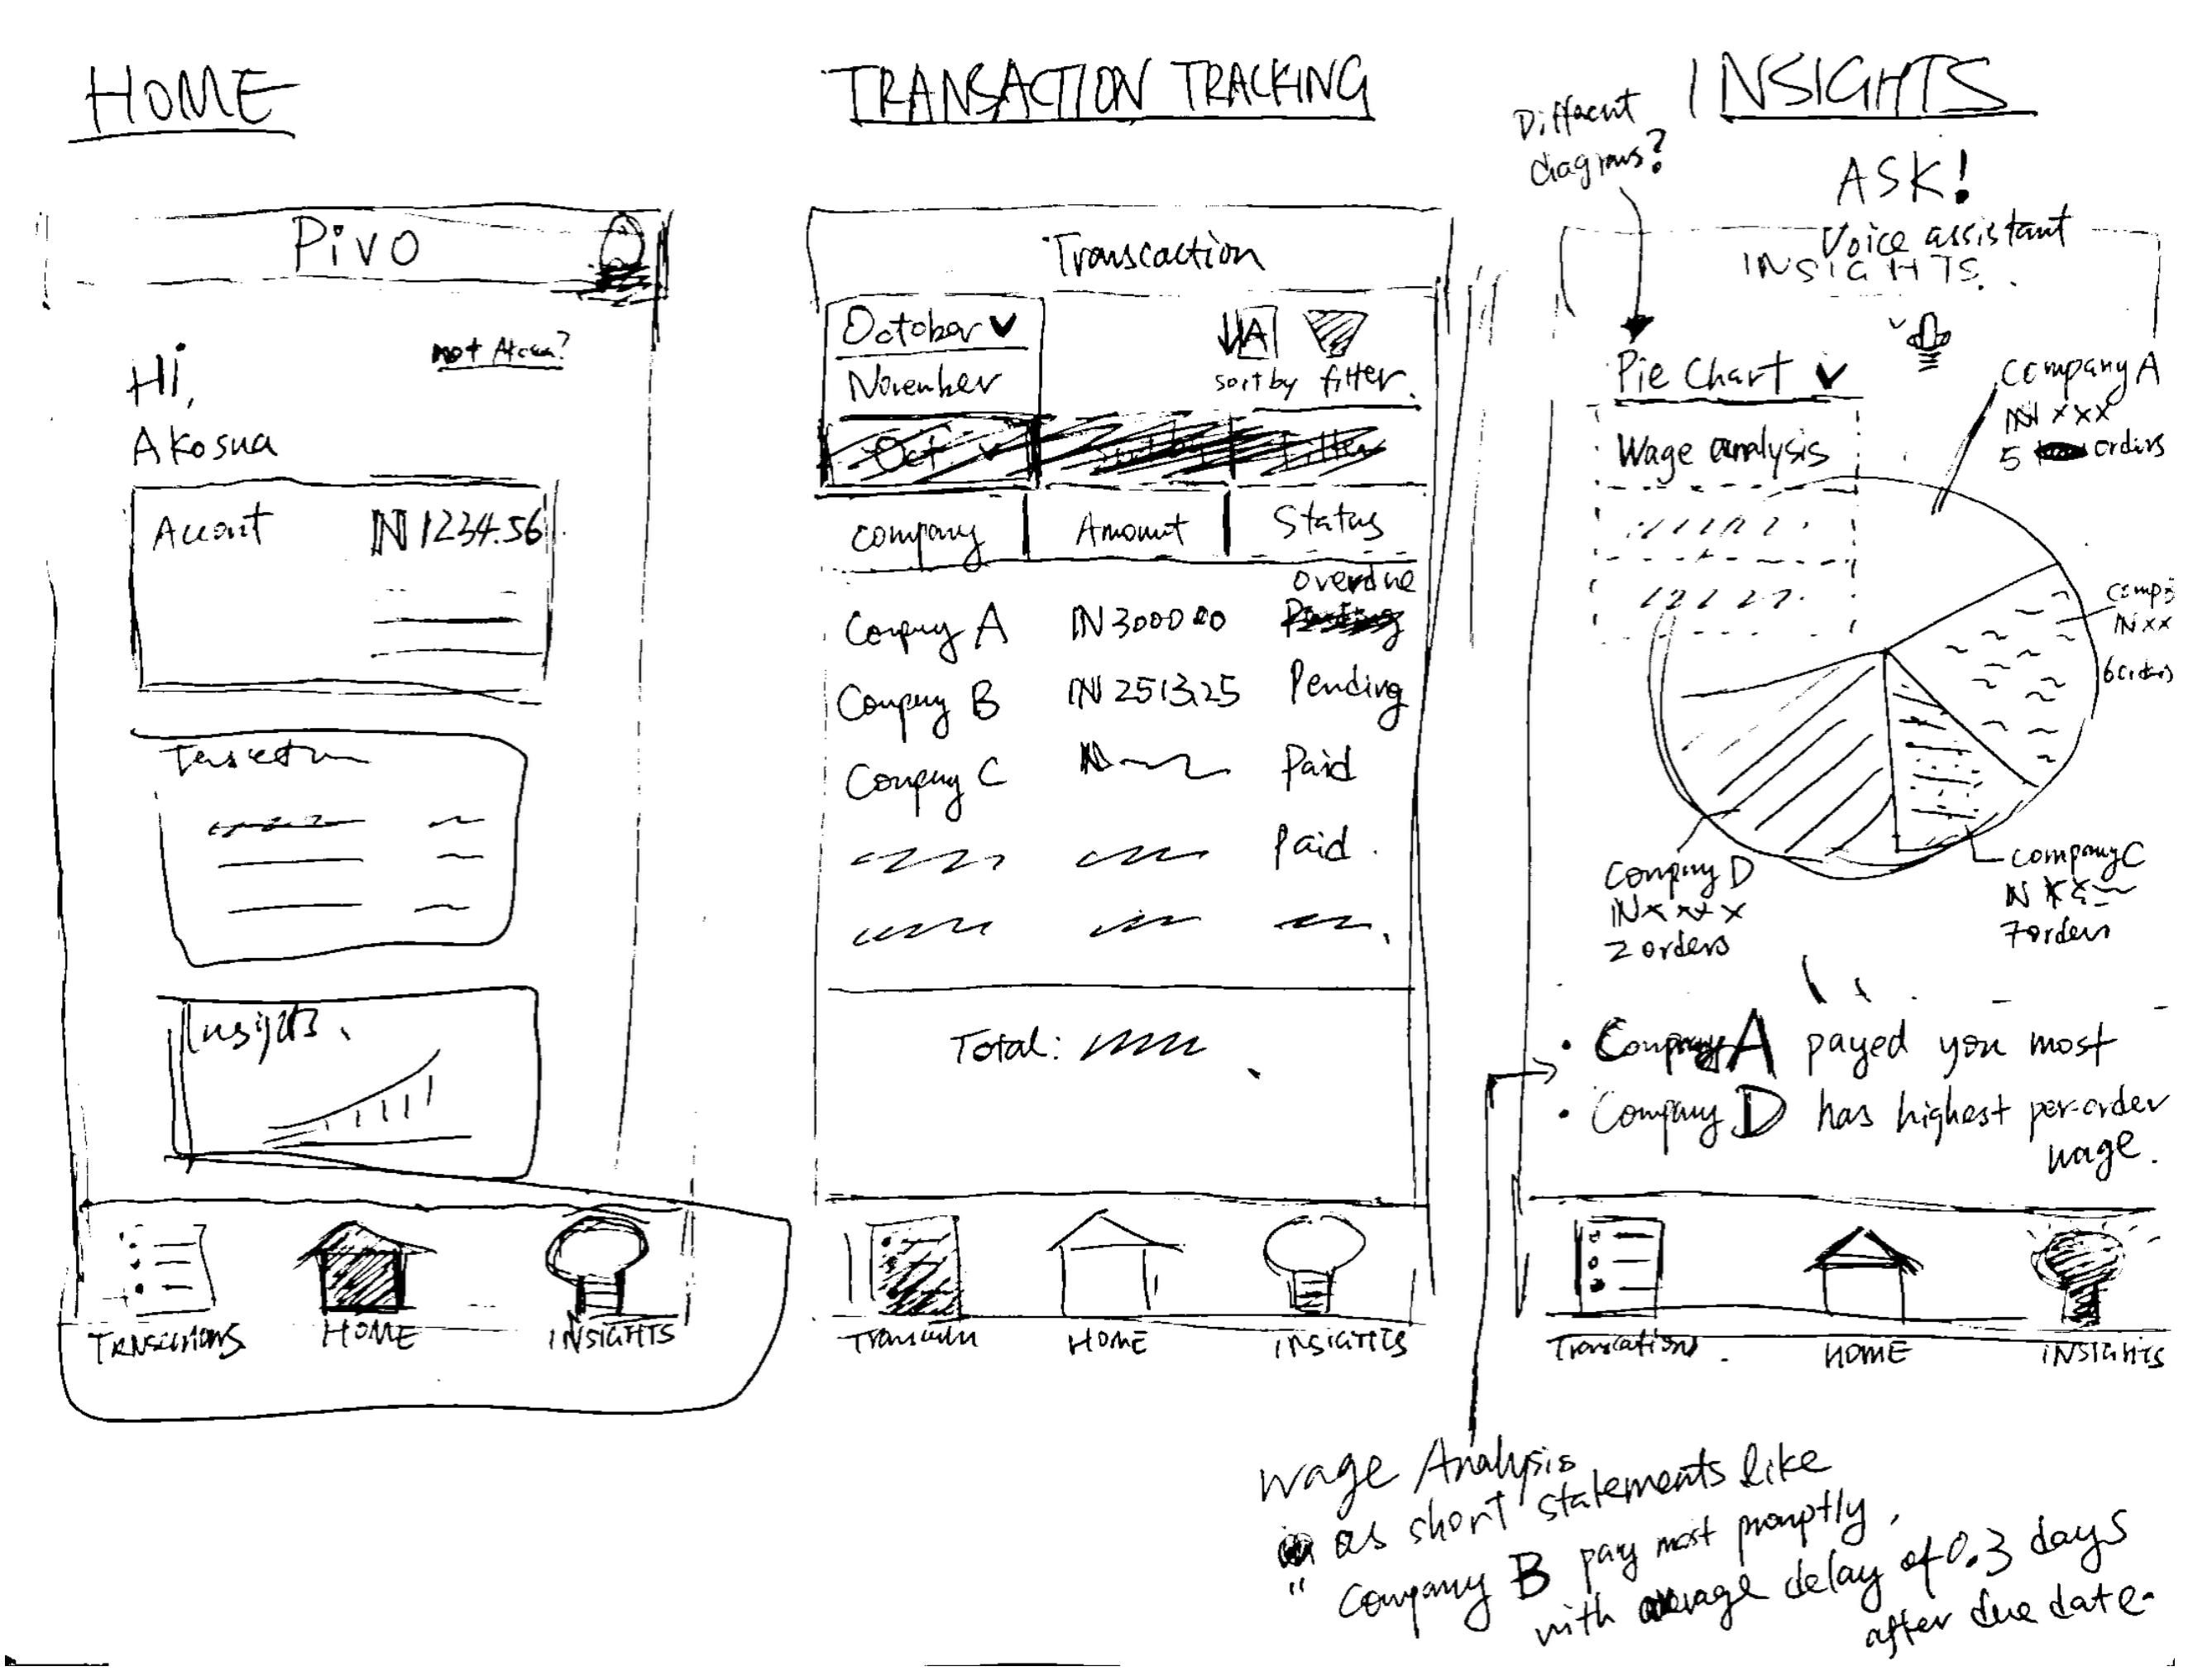 HOME
Pivo
not Akosua?
Hi,
Akosua
Account ₦1234.56
Insights
TRANSACTIONS HOME INSIGHTS
TRANSACTION TRACKING
Transcaction
October
November
sort by filter
Oct
company Amount Status
overdue
Company A ₦300000 Pending
Company B ₦2513.25 Pending
Company C ₦ Paid
Paid
Total:
HOME INSIGHTS
INSIGHTS
Different
diagrams?
ASK!
Voice assistant
INSIGHTS
Pie Chart
Wage analysis
Company A
₦xxx
5 orders
₦xx
6 orders
Company D
₦xxxx
2 orders
Company C
7 orders
• Company A payed you most
• Company D has highest per-order
wage.
HOME INSIGHTS
Wage Analysis
as short statements like
" Company B pay most promptly,
with average delay of 0.3 days
after due date.